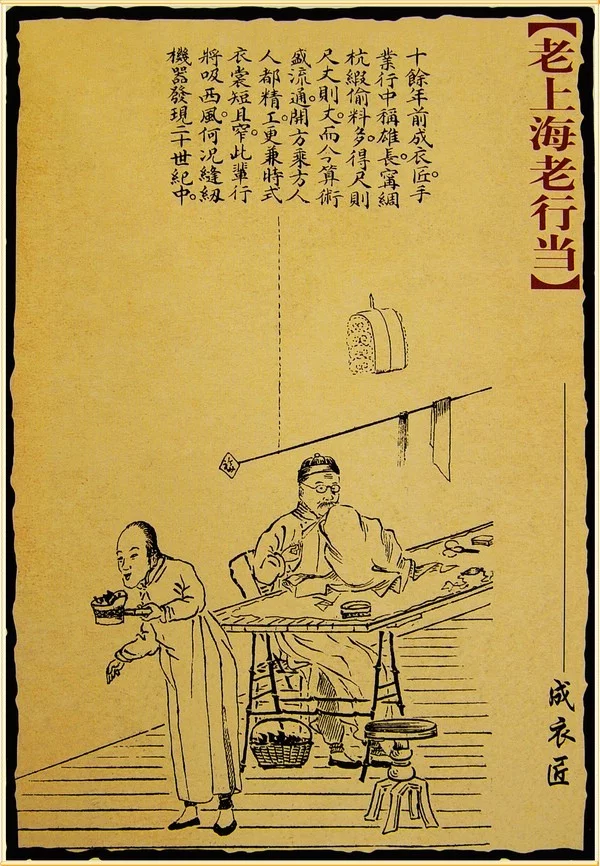 【老上海老行当】
十餘年前成衣匠。手
業行中稱雄長。甯綢
杭緞偷料多。得尺則
尺丈則丈。而今算術
盛流通。開方乘方人
人都精工。更兼時式
衣裳短且窄。此輩行
將吸西風。何況縫紉
機器發現二十世紀中。
成衣匠